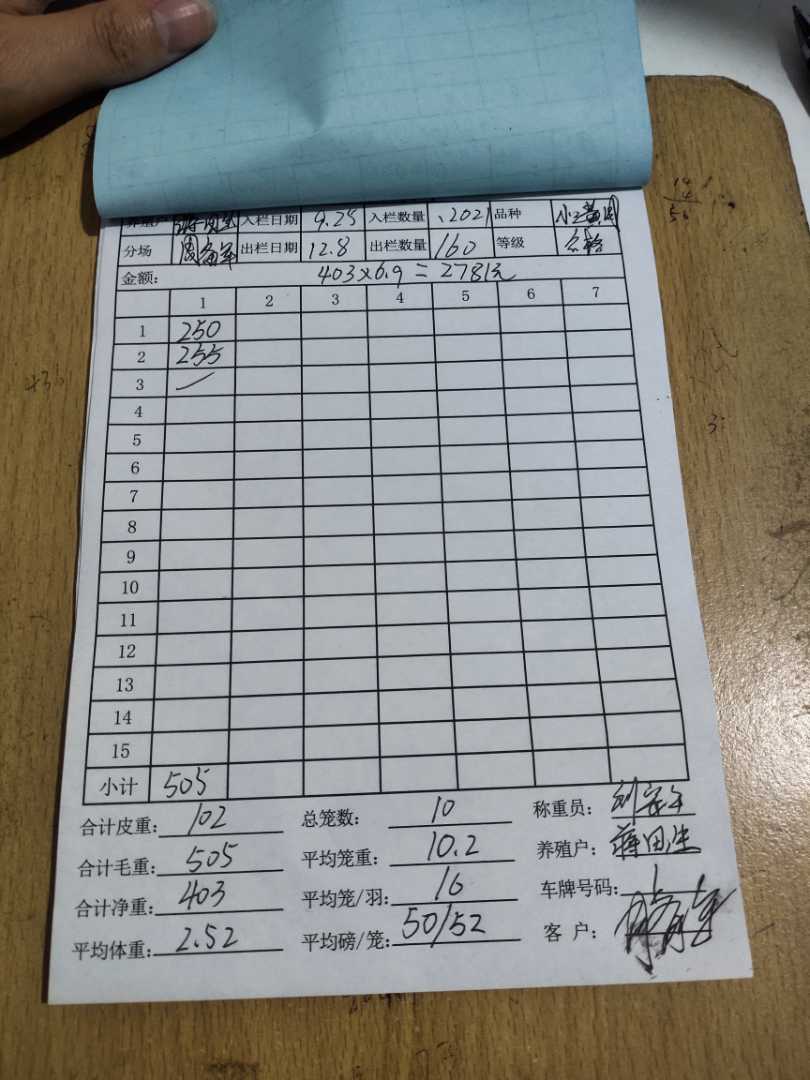 养殖户 蒋田生 入栏日期 9.25 入栏数量 .2021 品种
分场 出栏日期 12.8 出栏数量 160 等级
金额: 403×6.9=2781元
1 2 3 4 5 6 7
1 250
2 255
3
4
5
6
7
8
9
10
11
12
13
14
15
小计 505
合计皮重: 102 总笼数: 10 称重员:
合计毛重: 505 平均笼重: 10.2 养殖户: 蒋田生
合计净重: 403 平均笼/羽: 16 车牌号码:
平均体重: 2.52 平均磅/笼: 50/52 客 户: